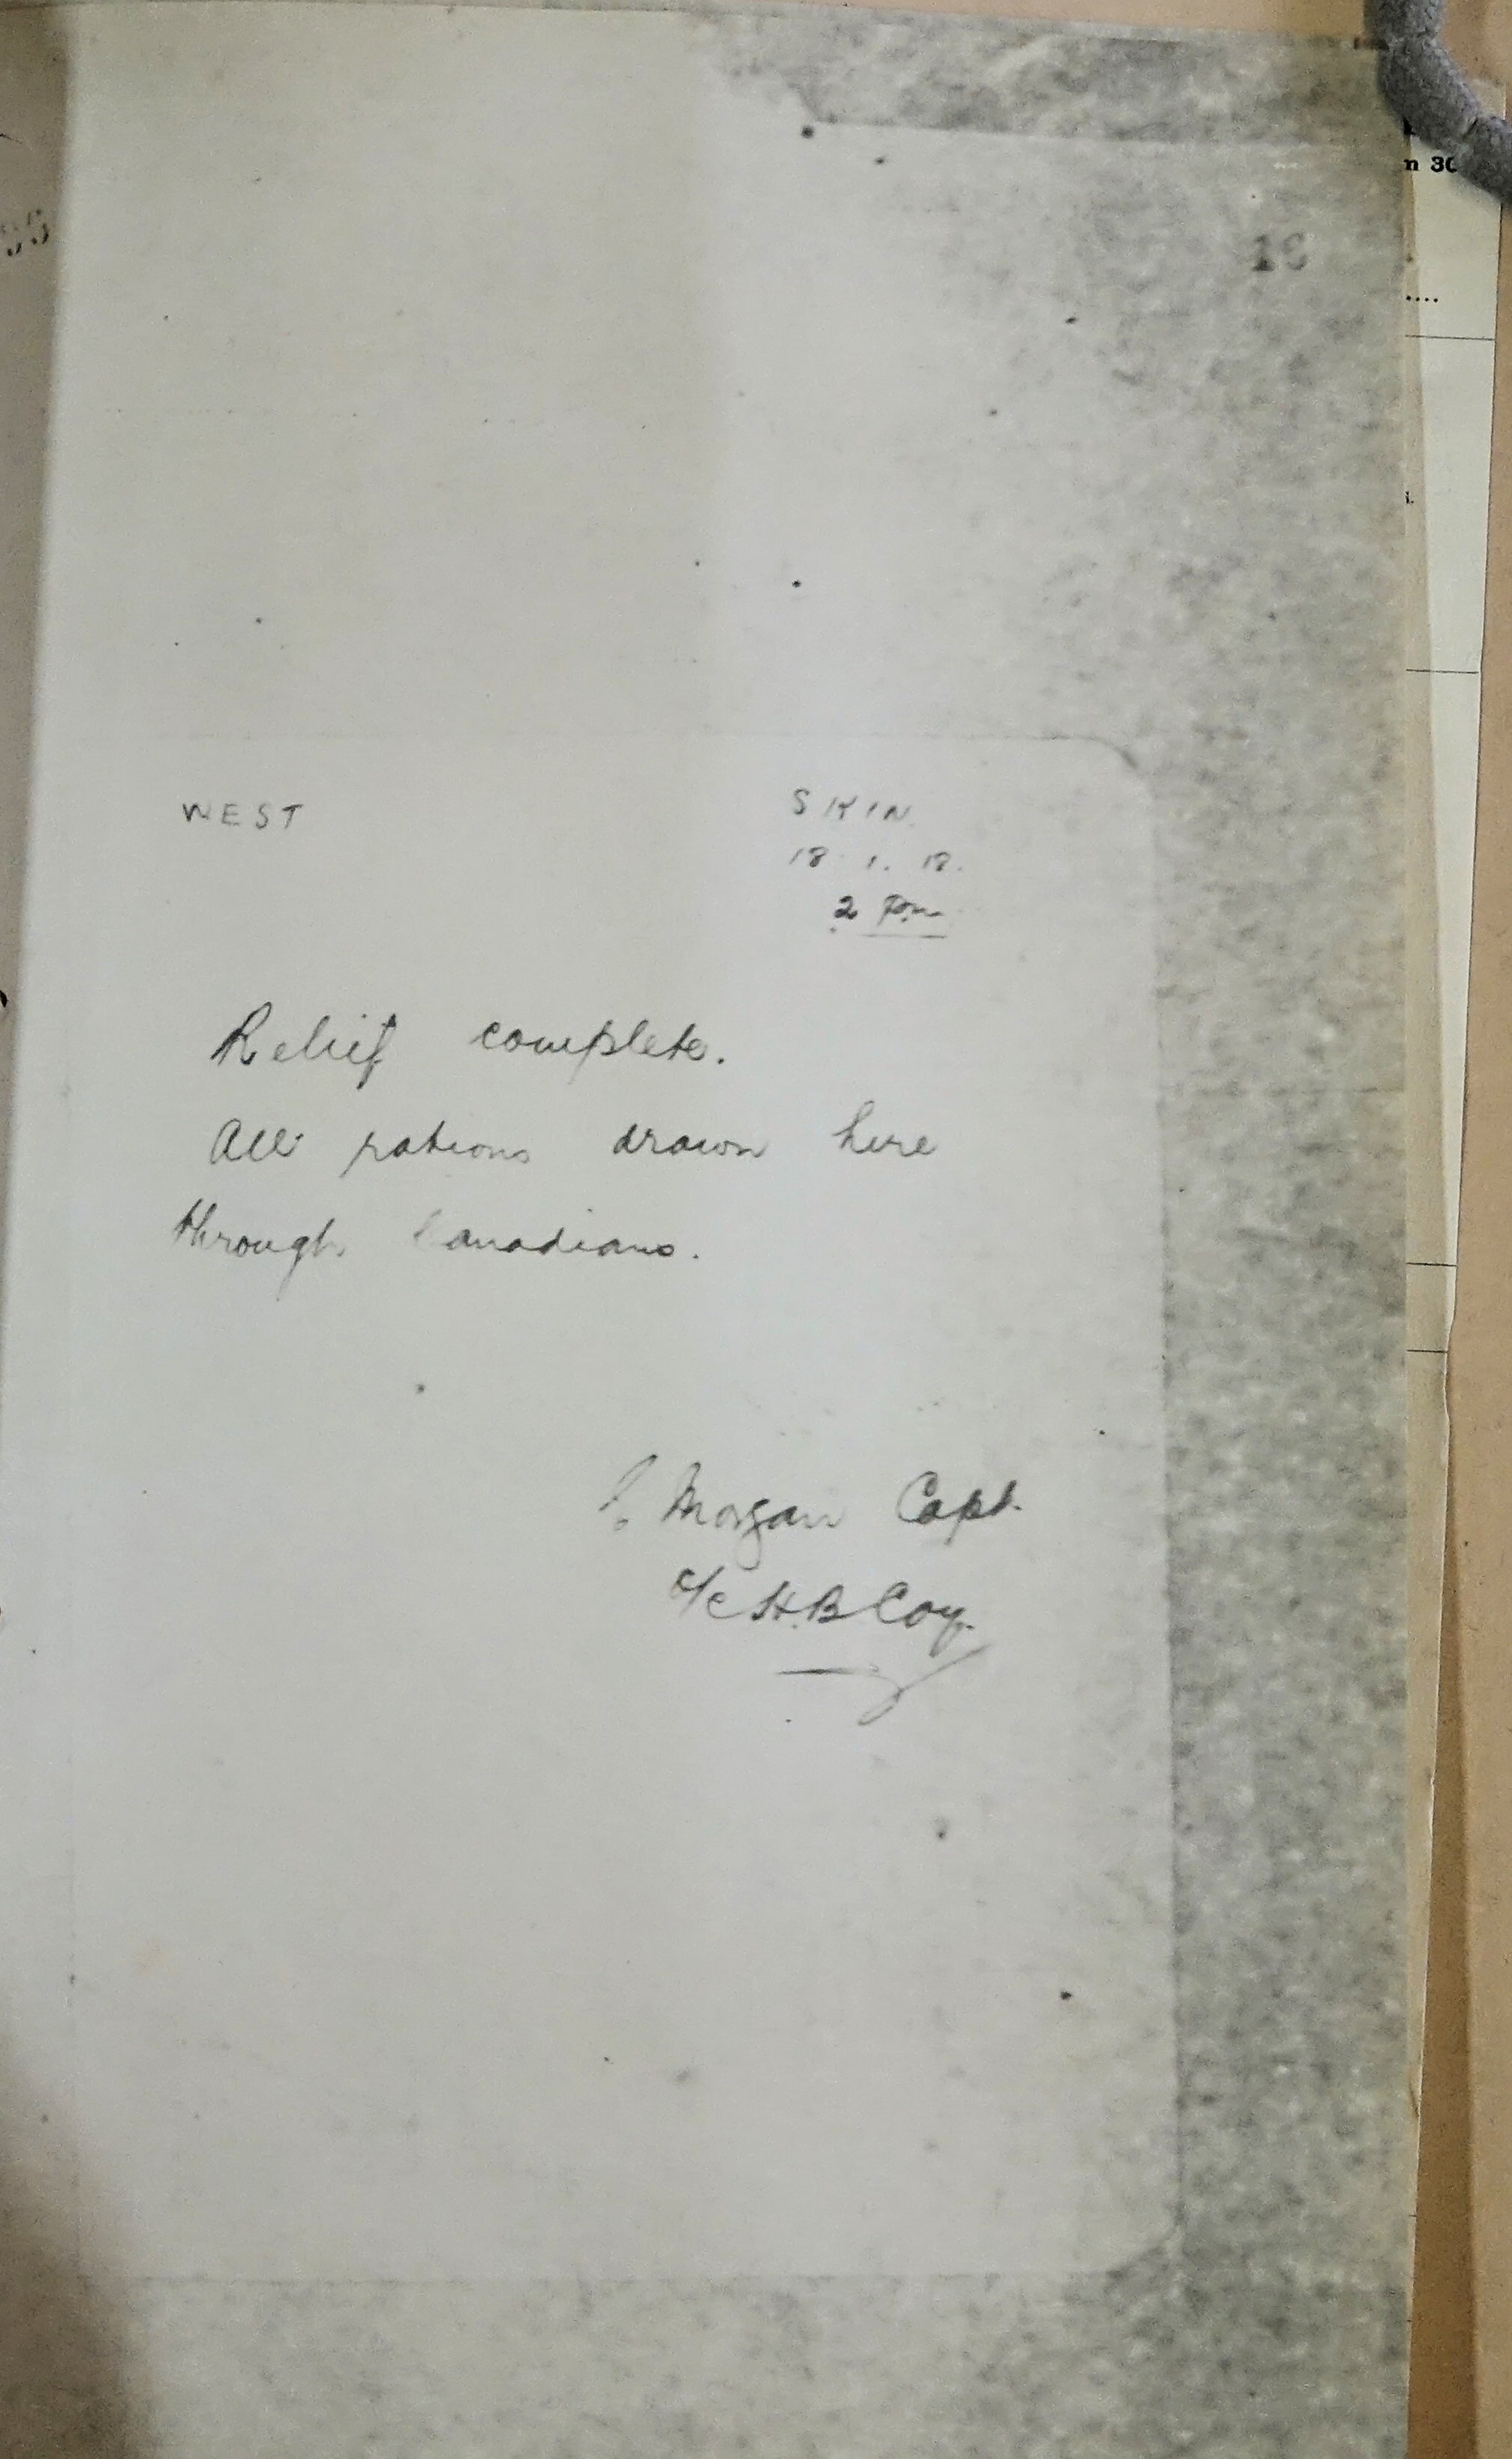 18
WEST
SKIN.
18. 1. 18.
2 pm
Relief complete.
All rations drawn here
through Canadians.
Morgan Capt.
O/C H.B Coy.
n 30